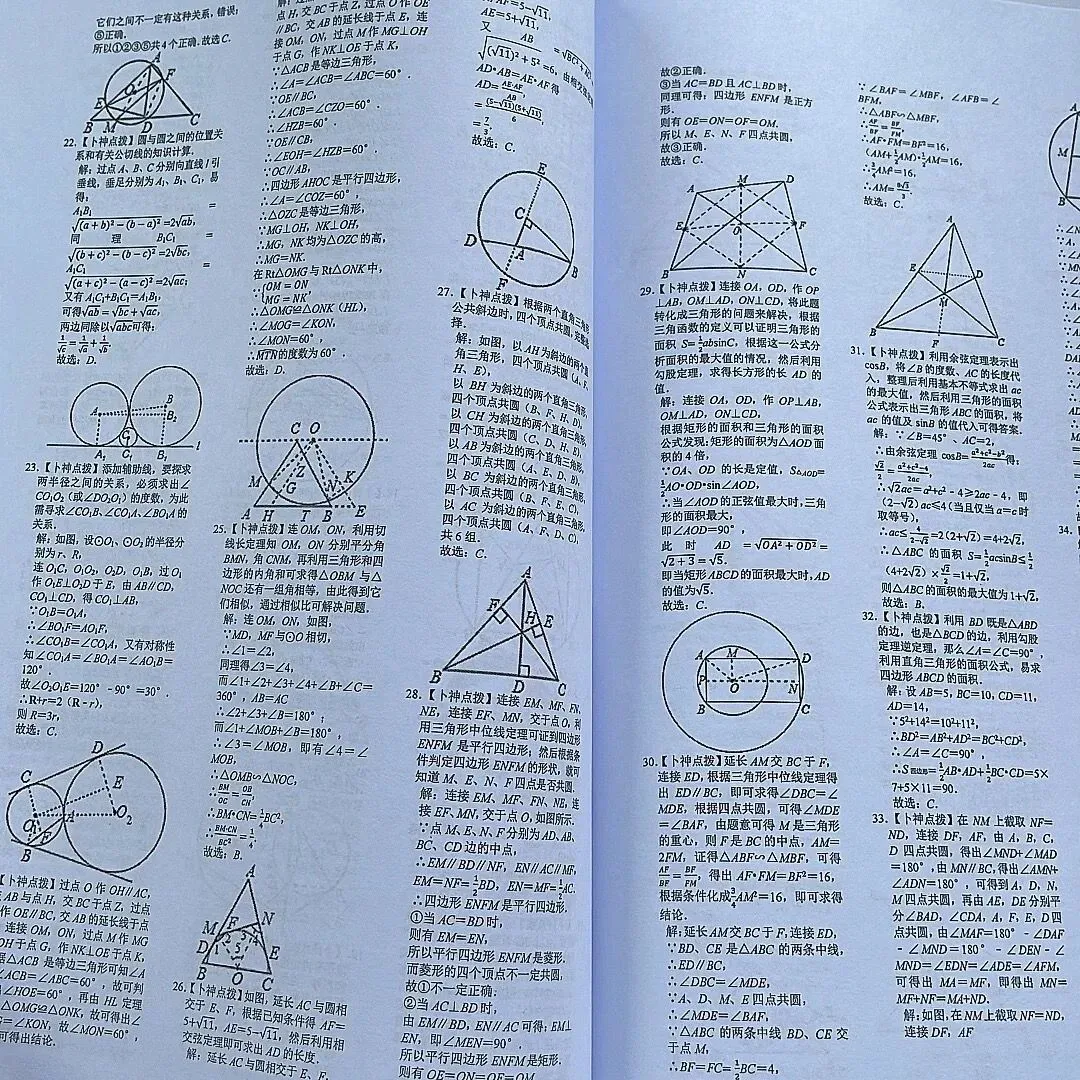 它们之间不一定有这种关系，错误；
⑤正确．
所以①②③⑤共4个正确．故选C．
A
F
E
O
B M D C
22.【卜神点拨】圆与圆之间的位置关
系和有关公切线的知识计算．
解：过点A、B、C分别向直线l引
垂线，垂足分别为A₁、B₁、C₁，易
得：
A₁B₁ =
√(a+b)²−(b−a)²=2√ab，
同 理 B₁C₁ =
√(b+c)²−(b−c)²=2√bc，
A₁C₁ =
√(a+c)²−(a−c)²=2√ac；
又有A₁C₁+B₁C₁=A₁B₁，
可得√ab=√bc+√ac，
两边同除以√abc可得：
1/√c=1/√a+1/√b．
故选：D．
A B B₂ C
A₁ C₁ B₁ l
23.【卜神点拨】添加辅助线，要探求
两半径之间的关系，必须求出∠
CO₁O₂（或∠DO₂O₁）的度数，为此
需寻求∠CO₁B、∠CO₁A、∠BO₁A的
关系．
解：如图，设⊙O₁、⊙O₂的半径分
别为r、R，
连O₁C，O₁O₂，O₂D，O₁B，过O₁
作O₁E⊥O₂D于E，由AB∥CD，
CO₁⊥CD，得CO₁⊥AB，
∵O₁B=O₁A，
∴∠BO₁F=AO₁F，
∴∠CO₁B=∠CO₁A，又有对称性
知∠CO₁A=∠BO₁A=∠AO₁B=
120°．
故∠O₂O₁E=120°﹣90°=30°．
∴R+r=2（R﹣r），
则R=3r，
故选：C．
D
C E
O₁ A O₂
F
B
【卜神点拨】过点O作OH∥AC，
AB与点H，交BC于点Z，过点
作OE∥BC，交AB的延长线于点
，连接OM，ON，过点M作MG
OH于点G，作NK⊥OE于点K，
△ACB是等边三角形可知∠A
∠ACB=∠ABC=60°，故可判
∠HOE=60°，再由HL定理
△OMG≌△ONK，故可得出∠
G=∠KON，故∠MON=60°，
可得出结论．
点H，交BC于点Z，过点O作OE
∥BC，交AB的延长线于点E，连
接OM，ON，过点M作MG⊥OH
于点G，作NK⊥OE于点K，
∵△ACB是等边三角形，
∴∠A=∠ACB=∠ABC=60°．
∵OE∥BC，
∴∠ACB=∠CZO=60°．
∴∠HZB=60°．
∵OE∥CB，
∴∠EOH=∠HZB=60°．
∵OC∥AB，
∴四边形AHOC是平行四边形，
∴∠A=∠COZ=60°，
∴△OZC是等边三角形，
∵MG⊥OH，NK⊥OH，
∴MG，NK均为△OZC的高，
∴MG=NK．
在Rt△OMG与Rt△ONK中，
∵{OM = ON
MG = NK，
∴△OMG≌△ONK（HL），
∴∠MOG=∠KON，
∴∠MON=60°，
∴MTN的度数为60°．
故选：D．
C O
Z
M G N K
A H T B E
25.【卜神点拨】连OM，ON，利用切
线长定理知OM，ON分别平分角
BMN，角CNM，再利用三角形和四
边形的内角和可求得△OBM与△
NOC还有一组角相等，由此得到它
们相似，通过相似比可解决问题．
解：连OM，ON，如图，
∵MD，MF与⊙O相切，
∴∠1=∠2，
同理得∠3=∠4，
而∠1+∠2+∠3+∠4+∠B+∠C=
360°，AB=AC
∴∠2+∠3+∠B=180°；
而∠1+∠MOB+∠B=180°，
∴∠3=∠MOB，即有∠4=∠
MOB，
∴△OMB∽△NOC，
∴BM/OC=OB/CN，
∴BM•CN=1/4BC²，
∴BM·CN/BC²=1/4．
故选：B．
A
F N
M
D
B O C
26.【卜神点拨】如图，延长AC与圆相
交于E、F，根据已知条件得AF=
5+√11，AE=5﹣√11，然后利用相
交弦定理即可求出AD的长度．
解：延长AC与圆相交于E、F，
AF=5﹣√11，
AE=5+√11，
又 AB
√(√11)²+5²=6，由相交弦
AD•AB=AE•AF得
AD=AE·AF/AB
=(5−√11)(5+√11)/6，
=7/3．
故选：C．
E
C
D A B
F
27.【卜神点拨】根据两个直角三角形
公共斜边时，四个顶点共圆，
择．
解：如图，以AH为斜边的两个直
角三角形，四个顶点共圆（A、F、
H、E），
以BH为斜边的两个直角三角形，
四个顶点共圆（B、F、H、D），
以CH为斜边的两个直角三角形，
四个顶点共圆（C、D、H、E），
以AB为斜边的两个直角三角形，
四个顶点共圆（A、E、D、B），
以BC为斜边的两个直角三角形，
四个顶点共圆（B、F、E、C），
以AC为斜边的两个直角三角形，
四个顶点共圆（A、F、D、C），
共6组．
故选：C．
A
F E
H
B D C
28.【卜神点拨】连接EM、MF、FN、
NE，连接EF、MN，交于点O，利
用三角形中位线定理可证到四边形
ENFM是平行四边形；然后根据条
件判定四边形ENFM的形状，就可
知道M、E、N、F四点是否共圆．
解：连接EM、MF、FN、NE，连
接EF、MN，交于点O，如图所示．
∵点M、E、N、F分别为AD、AB、
BC、CD边的中点，
∴EM∥BD∥NF，EN∥AC∥MF，
EM=NF=1/2BD，EN=MF=1/2AC．
∴四边形ENFM是平行四边形．
①当AC=BD时，
则有EM=EN，
所以平行四边形ENFM是菱形．
而菱形的四个顶点不一定共圆，
故①不一定正确；
②当AC⊥BD时，
由EM∥BD，EN∥AC可得：EM⊥
EN，即∠MEN=90°．
所以平行四边形ENFM是矩形．
则有OE=ON=OF=OM．
故②正确．
③当AC=BD且AC⊥BD时，
同理可得：四边形ENFM是正方
形．
则有OE=ON=OF=OM．
所以M、E、N、F四点共圆，
故③正确．
故选：C．
A M D
E O F
B N C
29.【卜神点拨】连接OA，OD，作OP
⊥AB，OM⊥AD，ON⊥CD，将此题
转化成三角形的问题来解决，根据
三角函数的定义可以证明三角形的
面积S=1/2absinC，根据这一公式分
析面积的最大值的情况，然后利用
勾股定理，求得长方形的长AD的
值．
解：连接OA，OD，作OP⊥AB，
OM⊥AD，ON⊥CD，
根据矩形的面积和三角形的面积
公式发现：矩形的面积为△AOD面
积的4倍，
∵OA、OD的长是定值，S△AOD=
1/2AO•OD•sin∠AOD，
∴当∠AOD的正弦值最大时，三角
形的面积最大，
即∠AOD=90°，
此时 AD =√OA²+OD²=
√2+3=√5．
即当矩形ABCD的面积最大时，AD
的值为√5．
故选：C．
A M D
P O N
B C
30.【卜神点拨】延长AM交BC于F，
连接ED，根据三角形中位线定理得
出ED∥BC，即可求得∠DBC=∠
MDE，根据四点共圆，可得∠MDE
=∠BAF，由题意可得M是三角形
的重心，则F是BC的中点，AM=
2FM，证得△ABF∽△MBF，可得
AF/BF=BF/FM，得出AF•FM=BF²=16，
根据条件化成3/4AM²=16，即可求得
结论．
解：延长AM交BC于F，连接ED，
∵BD、CE是△ABC的两条中线，
∴ED∥BC，
∴∠DBC=∠MDE，
∵A、D、M、E四点共圆，
∴∠MDE=∠BAF，
∵△ABC的两条中线BD、CE交
于点M，
∴BF=FC=1/2BC=4，
∵∠BAF=∠MBF，∠AFB=∠
BFM，
∴△ABF∽△MBF，
∴AF/BF=BF/FM，
∴AF•FM=BF²=16，
（AM+1/2AM）•1/2AM=16，
∴3/4AM²=16，
∴AM=8√3/3，
故选：C．
A
E D
M
B F C
31.【卜神点拨】利用余弦定理表示出
cosB，将∠B的度数、AC的长度代
入，整理后利用基本不等式求出ac
的最大值，然后利用三角形的面积
公式表示出三角形ABC的面积，将
ac的值及sinB的值代入可得答案．
解：∵∠B=45°、AC=2，
∴由余弦定理cosB=a²+c²−b²/2ac得：
√2/2=a²+c²−4/2ac
∴√2ac=a²+c²﹣4≥2ac﹣4，即
（2﹣√2）ac≤4（当且仅当a=c时
取等号），
∴ac≤4/2−√2=2（2+√2）=4+2√2，
∴△ABC的面积S=1/2acsinB≤1/2
（4+2√2）×√2/2=1+√2，
则△ABC的面积的最大值为1+√2，
故选：B．
32.【卜神点拨】利用BD既是△ABD
的边，也是△BCD的边，利用勾股
定理逆定理，那么∠A=∠C=90°，
利用直角三角形的面积公式，易求
四边形ABCD的面积．
解：设AB=5，BC=10，CD=11，
AD=14，
∵5²+14²=10²+11²，
∴BD²=AB²+AD²=BC²+CD²，
∴∠A=∠C=90°，
∴S四边形=1/2AB•AD+1/2BC•CD=5×
7+5×11=90．
故选：C．
33.【卜神点拨】在NM上截取NF=
ND，连接DF，AF，由A，B，C，
D四点共圆，得出∠MND+∠MAD
=180°，由MN∥BC，得出∠AMN+
∠ADN=180°，可得到A，D，N，
M四点共圆，再由AE，DE分别平
分∠BAD，∠CDA，A，F，E，D四
点共圆，由∠MAF=180°﹣∠DAF
﹣∠MND=180°﹣∠DEN﹣∠
MND=∠EDN=∠ADE=∠AFM，
可得出MA=MF，即得出MN=
MF+NF=MA+ND．
解：如图，在NM上截取NF=ND，
连接DF，AF
M
34.